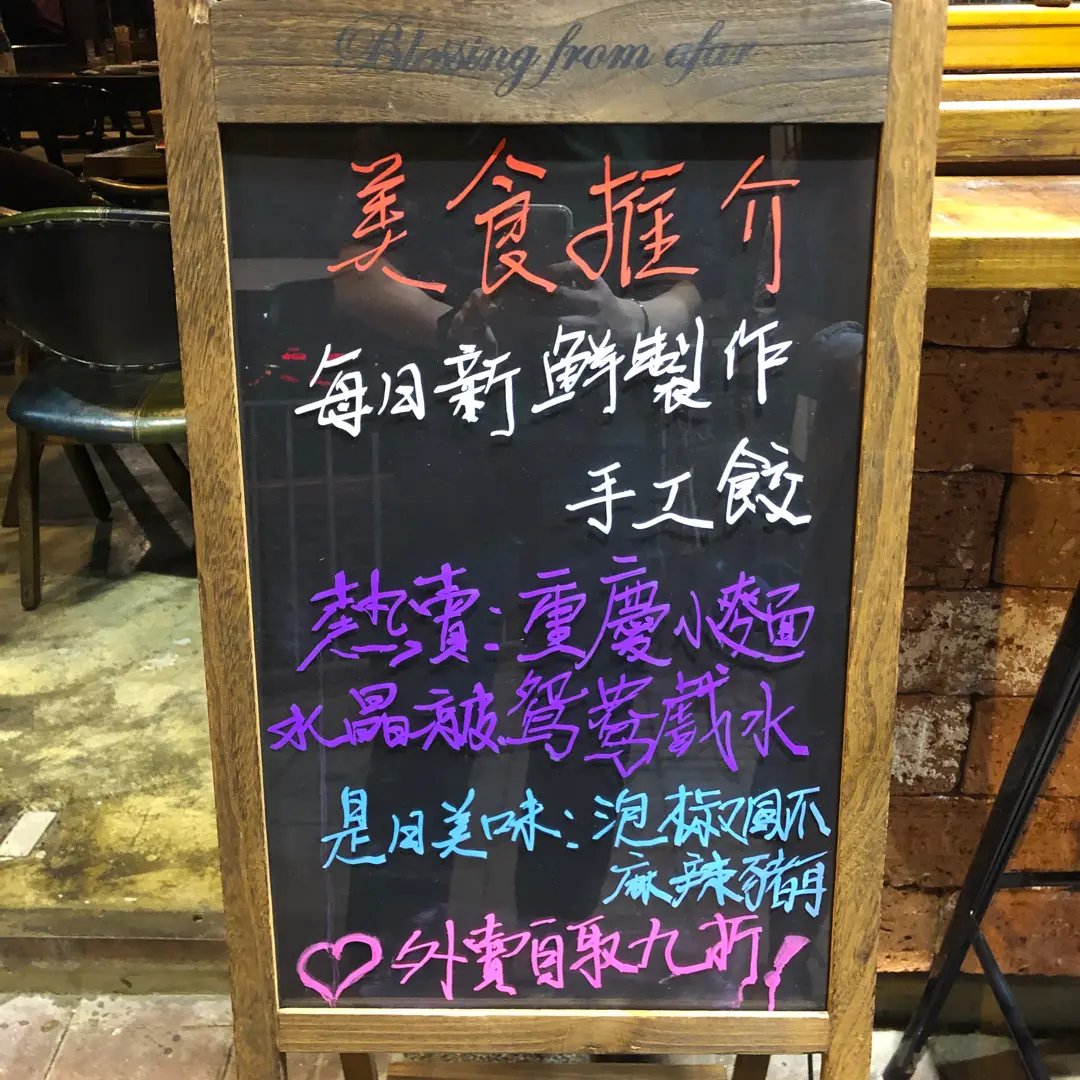 Blessing from afar
美食推介
每日新鮮製作
手工餃
熱賣:重慶小麵
水晶被鴛鴦戲水
是日美味:泡椒
麻辣豬
外賣自取九折!